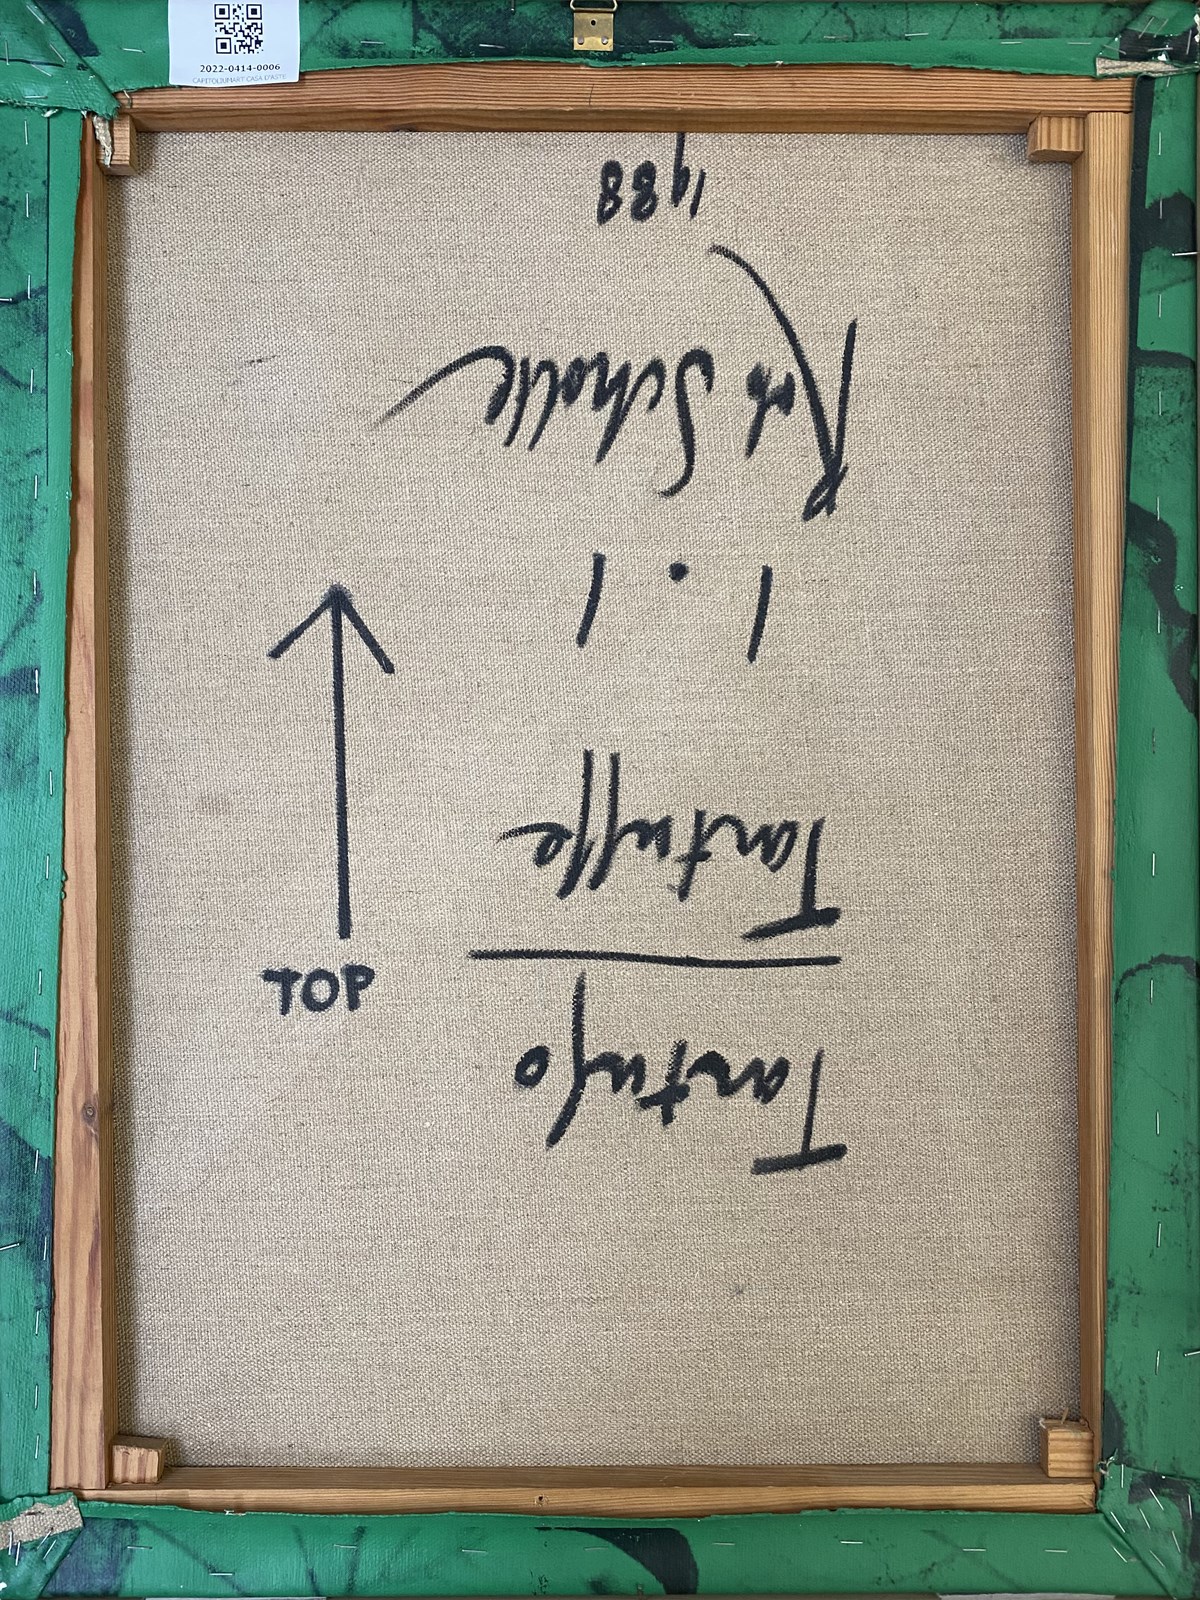 2022-0414-0006
CAPITOLIUMART CASA D'ASTE
TOP
Tartufo
Tartuffe
1.1
Rob Scholte
1988